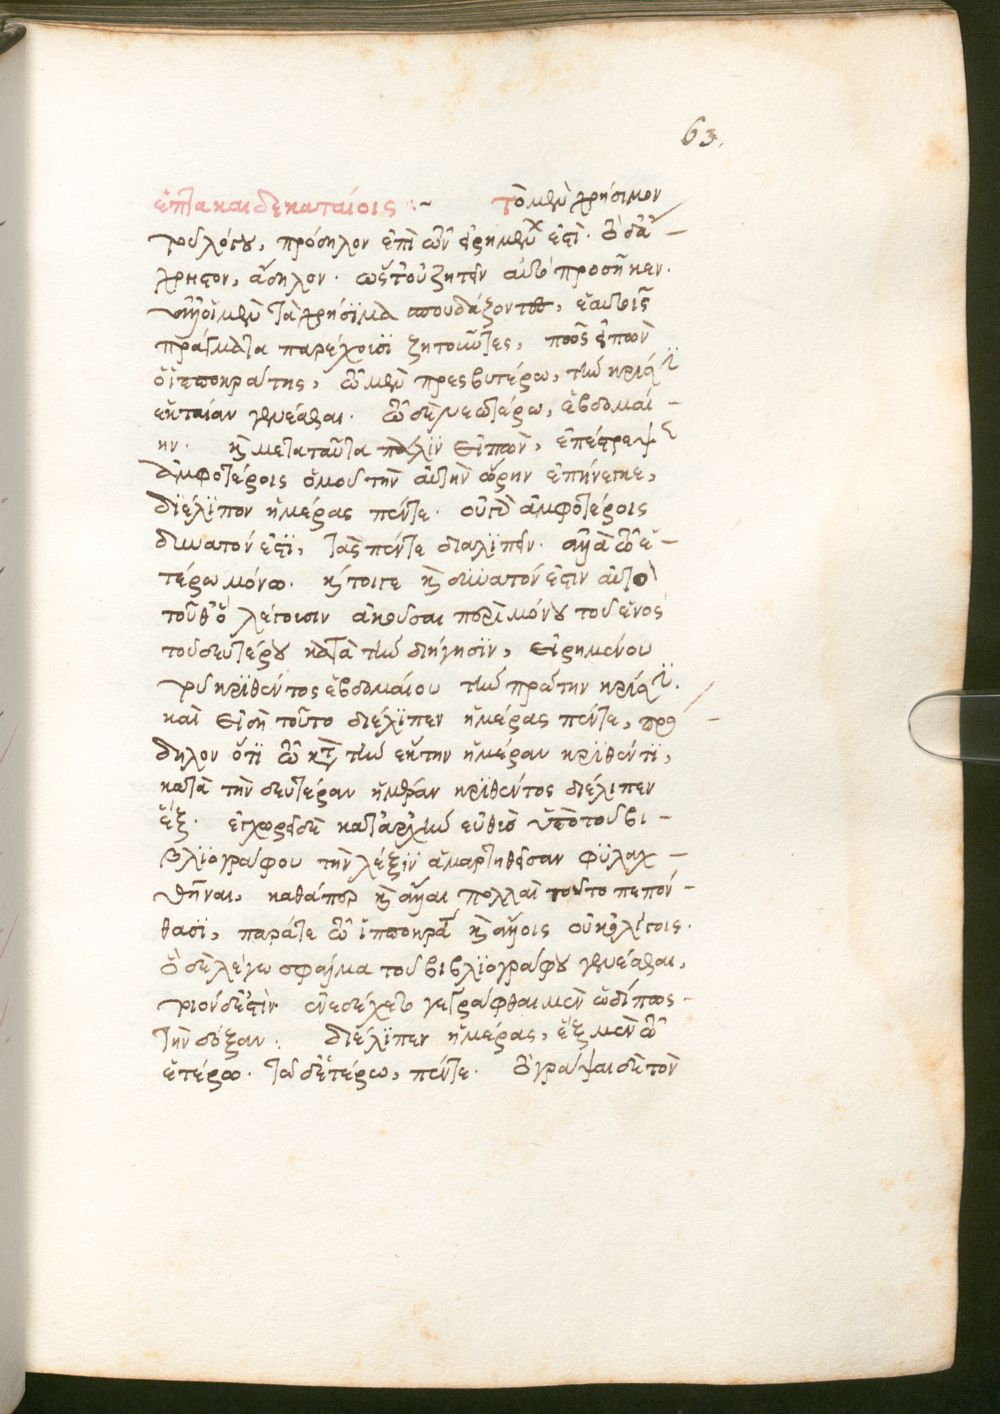 63.
ἑπτακαιδεκαταίοις :~ Τὸ μὲν χρήσιμον
τοῦ λόγου, πρόδηλον ἐπὶ ὧν εἰρημεν ἐστί. ὃ δ' ἄ-
χρηστον, ἄδηλον. ὥστ' οὐ ζητεῖν αὐτὸ προσῆκεν.
ἀλλ' οἱ μὲν τὰ χρήσιμα σπουδάζοντες, ἑαυτοῖς
πράγματα παρέχουσι ζητοῦντες, πῶς εἰπὼν
ὁ ἱπποκράτης, τῷ μὲν πρεσβυτέρῳ, τὴν κρίσιν
ἑκταίαν γενέσθαι. τῷ δὲ νεωτέρῳ, ἑβδομαί-
ην. κ μετὰ ταῦτα πάλιν εἰπὼν, ὑπέστρεψε
ἀμφοτέροις ὁμοῦ τὴν αὐτὴν ὥρην ἐπήνεγκε,
διέλιπον ἡμέρας πέντε. οὔτε ἀμφοτέροις
δυνατόν ἐστι, τὰς πέντε διαλιπεῖν. ἀλλὰ τῷ ἑ-
τέρῳ μόνῳ. κ τοιγε κ δυνατόν ἐστιν αὐτὸ
τοῦθ' ὃ λέγουσιν ἀκοῦσαι περὶ μόνου τοῦ ἑνὸς
τοῦ δευτέρου κατὰ τὴν διήγησιν, εἰρημένου
τοῦ κριθέντος ἑβδομαίου τὴν πρώτην κρίσιν.
καὶ εἰ δὴ τοῦτο διέλιπεν ἡμέρας πέντε, πρό-
δηλον ὅτι τῷ κτ τὴν ἕκτην ἡμέραν κριθέντι,
κατὰ τὴν δευτέραν ἡμέραν κριθέντος διέλιπεν
ἕξ. ἐγχωρεῖ δὲ κατ' ἀρχὴν εὐθὺς ὑπὸ τοῦ βι-
βλιογράφου τὴν λέξιν ἁμαρτηθεῖσαν φυλαχ-
θῆναι, καθάπερ κ ἄλλαι πολλαὶ τοῦτο πεπόν-
θασι, παρά τε τῷ ἱπποκρατ κ ἄλλοις οὐκ ὀλίγοις.
ὃ δὲ λέγω σφάλμα τοῦ βιβλιογράφου γενέσθαι,
τοιόνδε ἐστίν. ἐνεδέχετο γεγράφθαι μὲν ὡδί πως
τὴν δόξαν. διέλιπεν ἡμέρας, ἓξ μὲν τῷ
ἑτέρῳ. τῷ δ' ἑτέρῳ, πέντε. ὑγράψαι δὲ τὸν